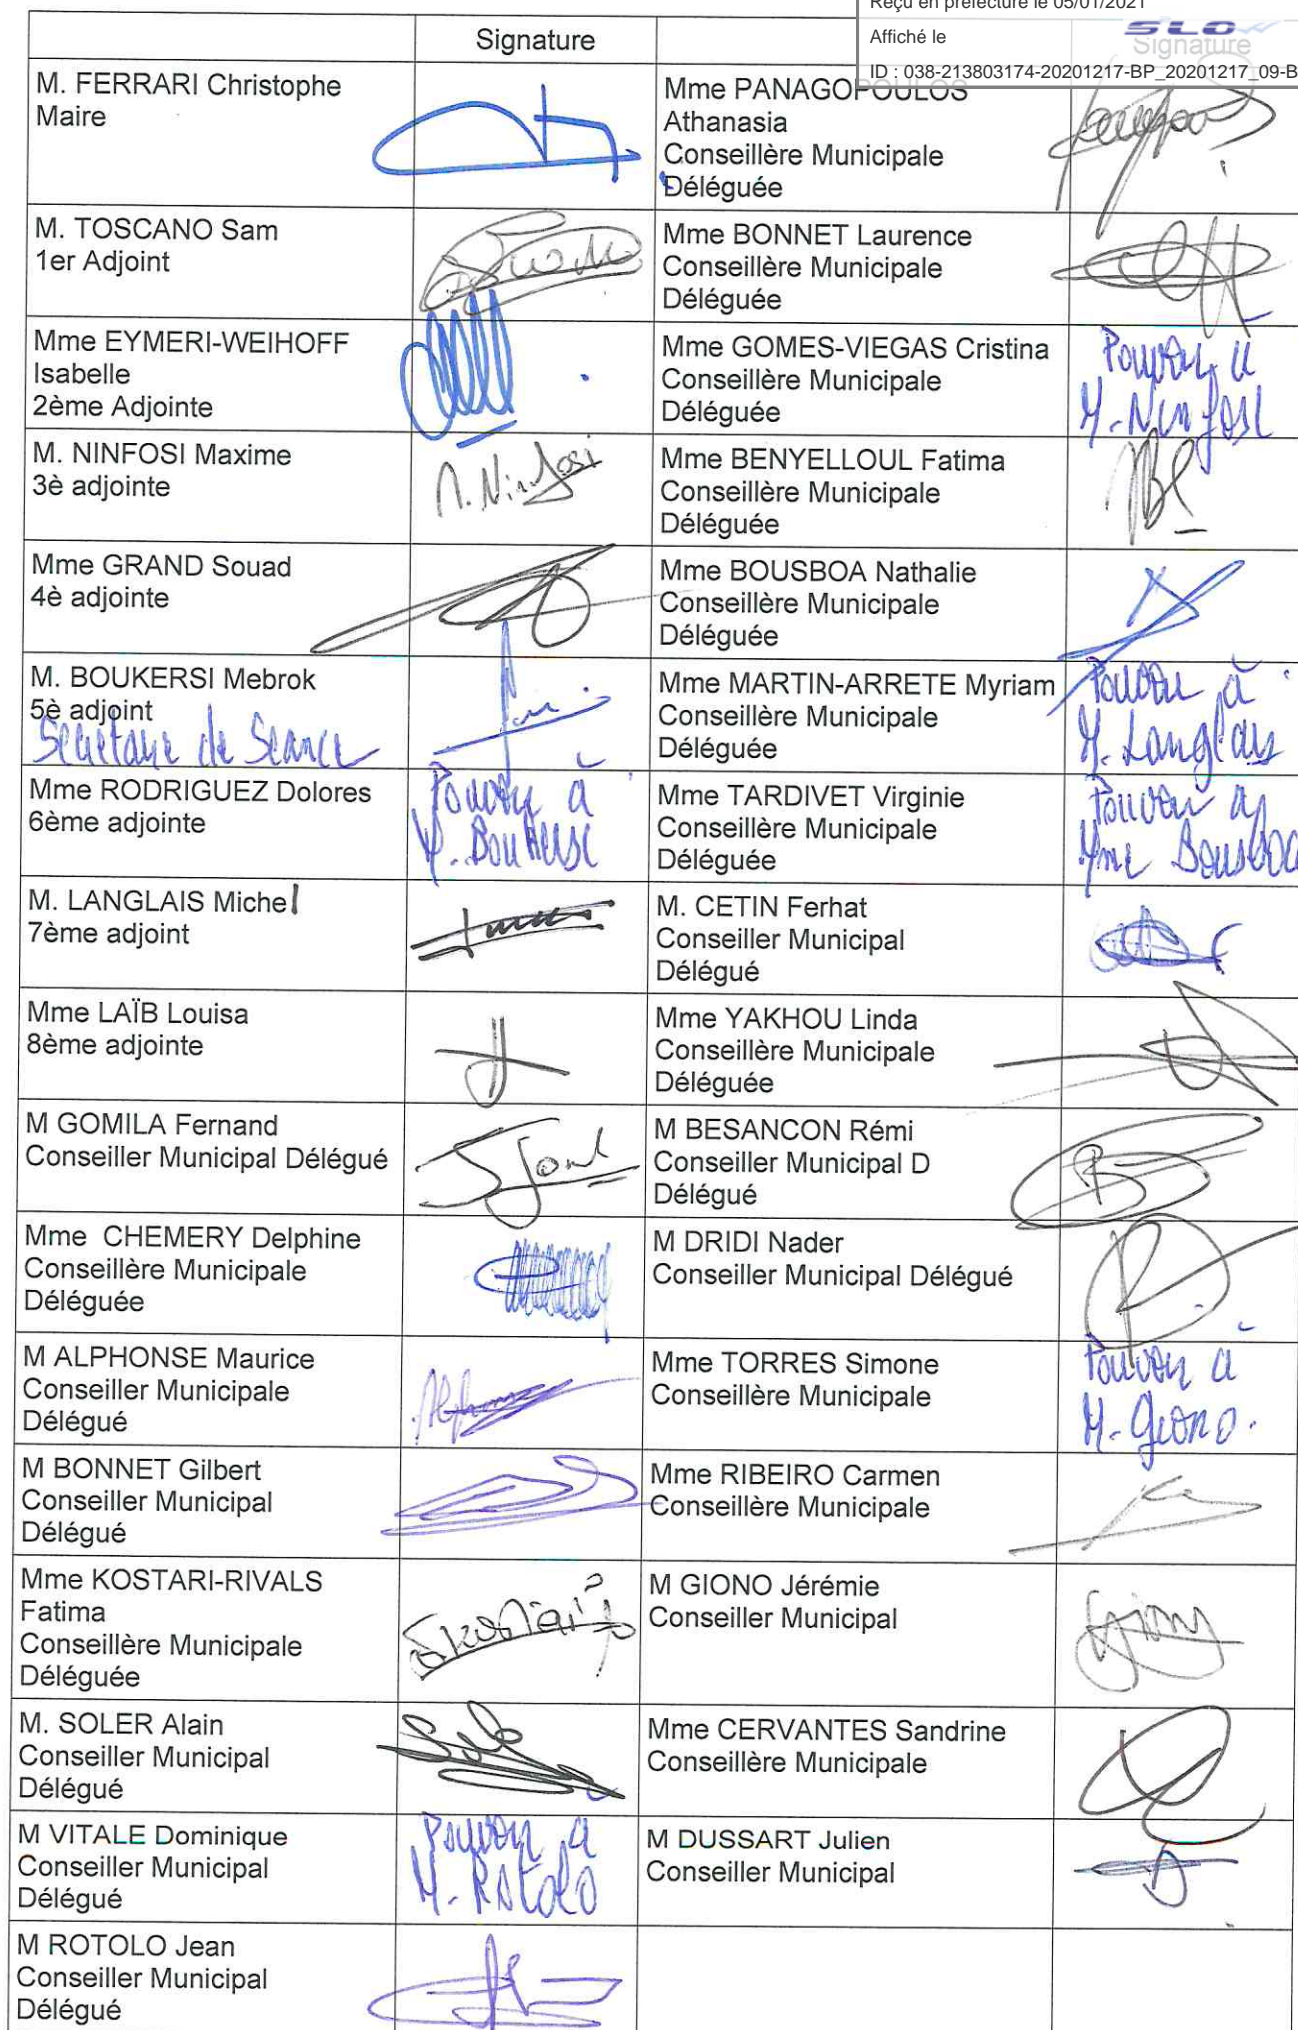 Reçu en préfecture le 05/01/2021
Affiché le
SLO
ID : 038-213803174-20201217-BP_20201217_09-B
Signature
Signature
M. FERRARI Christophe
Maire
Mme PANAGOPOULOS
Athanasia
Conseillère Municipale
Déléguée
M. TOSCANO Sam
1er Adjoint
Mme BONNET Laurence
Conseillère Municipale
Déléguée
Mme EYMERI-WEIHOFF
Isabelle
2ème Adjointe
Mme GOMES-VIEGAS Cristina
Conseillère Municipale
Déléguée
Pouvoir à
M. Ninfosi
M. NINFOSI Maxime
3è adjointe
M. Ninfosi
Mme BENYELLOUL Fatima
Conseillère Municipale
Déléguée
Mme GRAND Souad
4è adjointe
Mme BOUSBOA Nathalie
Conseillère Municipale
Déléguée
M. BOUKERSI Mebrok
5è adjoint
Secrétaire de Séance
Mme MARTIN-ARRETE Myriam
Conseillère Municipale
Déléguée
Pouvoir à
M. Langlais
Mme RODRIGUEZ Dolores
6ème adjointe
Pouvoir à
M. Boukersi
Mme TARDIVET Virginie
Conseillère Municipale
Déléguée
Pouvoir à
Mme Bousboa
M. LANGLAIS Michel
7ème adjoint
M. CETIN Ferhat
Conseiller Municipal
Délégué
Mme LAÏB Louisa
8ème adjointe
Mme YAKHOU Linda
Conseillère Municipale
Déléguée
M GOMILA Fernand
Conseiller Municipal Délégué
M BESANCON Rémi
Conseiller Municipal D
Délégué
Mme CHEMERY Delphine
Conseillère Municipale
Déléguée
M DRIDI Nader
Conseiller Municipal Délégué
M ALPHONSE Maurice
Conseiller Municipale
Délégué
Mme TORRES Simone
Conseillère Municipale
Pouvoir à
M. Giono.
M BONNET Gilbert
Conseiller Municipal
Délégué
Mme RIBEIRO Carmen
Conseillère Municipale
Mme KOSTARI-RIVALS
Fatima
Conseillère Municipale
Déléguée
M GIONO Jérémie
Conseiller Municipal
M. SOLER Alain
Conseiller Municipal
Délégué
Mme CERVANTES Sandrine
Conseillère Municipale
M VITALE Dominique
Conseiller Municipal
Délégué
Pouvoir à
M. Rotolo
M DUSSART Julien
Conseiller Municipal
M ROTOLO Jean
Conseiller Municipal
Délégué